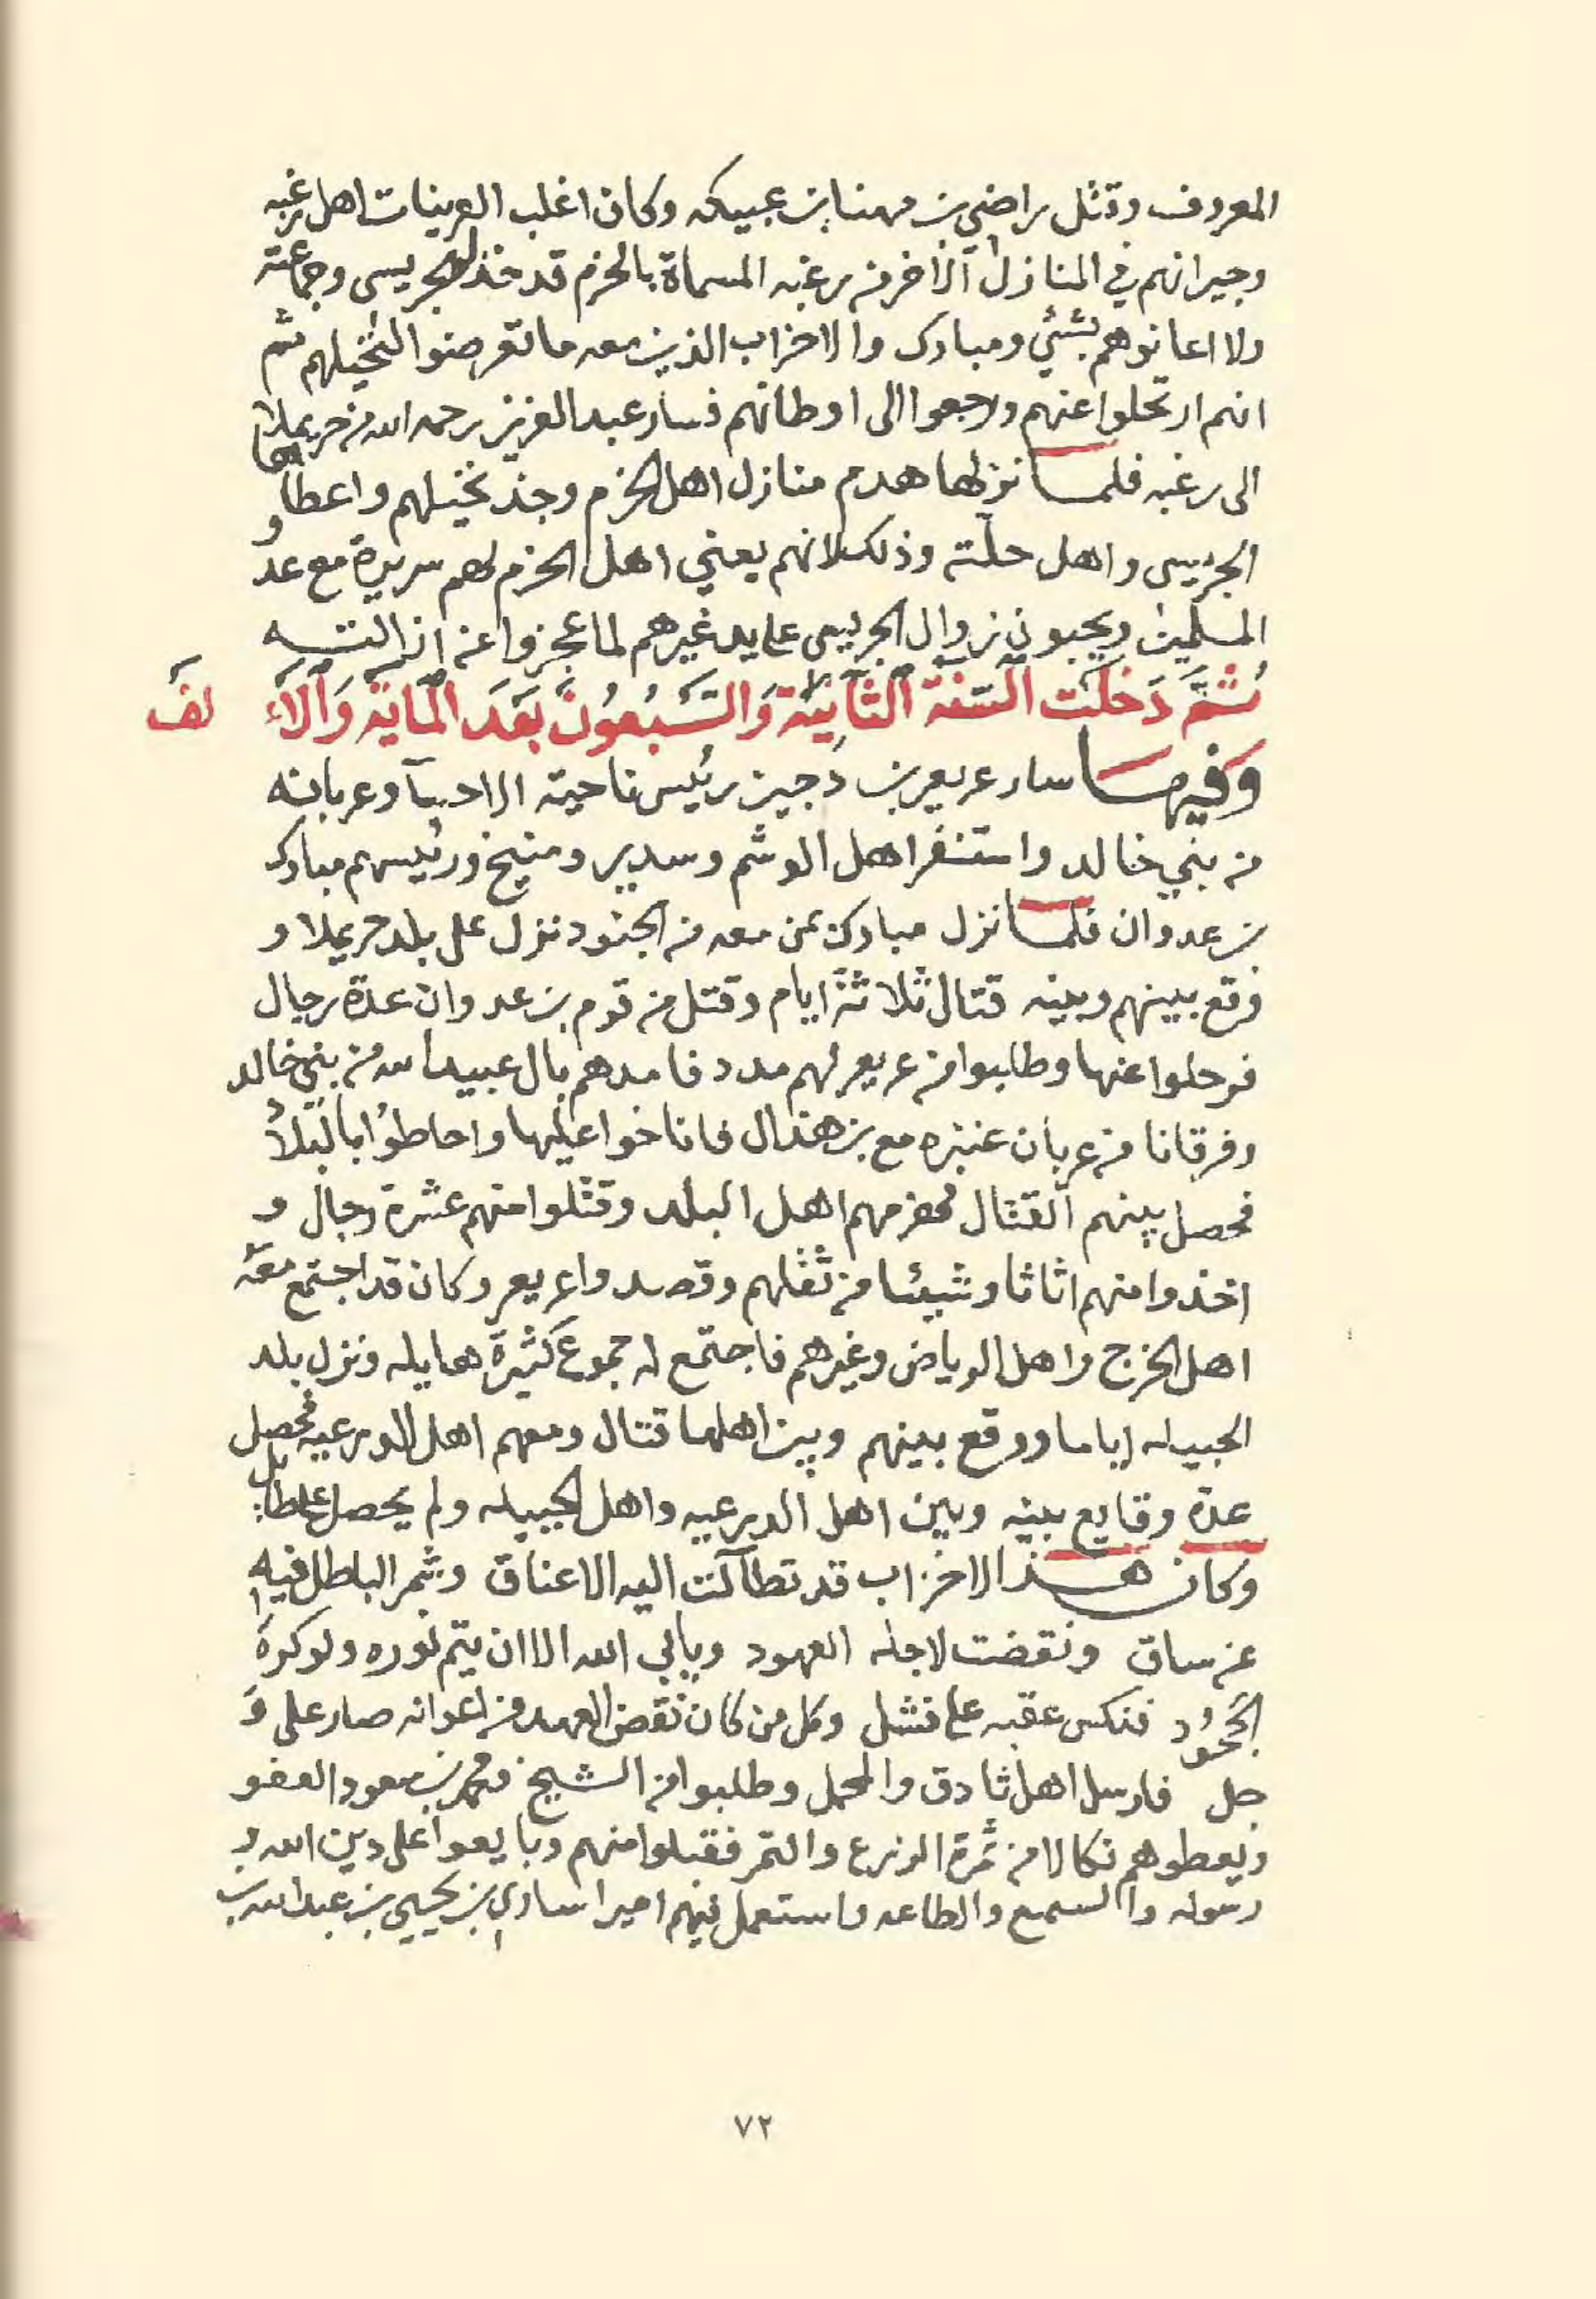 المعروف وقتل راضي بن مهنا بن عبيكه وكان اغلب العرينات اهل رغبه
وجيرانهم في المنازل الاخر من رغبه المسماة بالحزم قد خذلوا الجريسى وجماعته
ولا اعانوهم بشئي ومبارك والاحزاب الذين معه ما تعرضوا النخيلهم ثم
انهم ارتحلوا عنهم ورجعوا الى اوطانهم فسار عبدالعزيز رحمه الله من حريملا
الى رغبه فلما نزلها هدم منازل اهل الحزم وجذ نخيلهم واعطاها
الجريسى واهل حلّته وذلك لانهم يعني اهل الحزم لهم سريرة مع عدو
المسلمين ويحبون زوال الجريسى على يد غيرهم لما عجزوا عن ازالته
ثُمَّ دَخَلَت السَّنَةُ الثَّانِيَة وَالسَّبْعُونَ بَعْدَ المايَة وَالْألفَ
وفيها سار عريعر بن دجين رئيس ناحية الاحسآ وعربانه
من بني خالد واستنفر اهل الوشم وسدير ومنيخ ورئيسهم مبارك
بن عدوان فلما نزل مبارك بمن معه من الجنود نزل على بلد حريملا و
وقع بينهم وبينه قتال ثلاثة ايام وقتل من قوم بن عدوان عدّة رجال
فرحلوا عنها وطلبوا من عريعر لهم مدد فامدهم بال عبيدالله من بني خالد
وفرقانا من عربان عنزه مع بن هذال فاناخوا عليها واحاطوا بالبلد
فحصل بينهم القتال فهزمهم اهل البلد وقتلوا منهم عشرة رجال و
اخذوا منهم اثاثا وشيئا من ثقلهم وقصدوا عريعر وكان قد اجتمع معه
اهل الخرج واهل الرياض وغيرهم فاجتمع له جموع كثيرة هايله ونزل بلد
الجبيله اياما ووقع بينهم وبين اهلها قتال ومعهم اهل الدرعيه فحصل
عدّة وقايع بينه وبين اهل الدرعيه واهل الجبيله ولم يحصل على طايل
وكان هذا الاحزاب قد تطآلت اليه الاعناق وشمر الباطل فيه
عن ساق ونقضت لاجله العهود ويابي الله الا ان يتم نوره ولوكره
الجَحُود فنكس عقبه على فشل وكل من كان نقض العهد من اعوانه صار على وَ
جل فارسل اهل ثادق والمحمل وطلبوا من الشيخ ومحمد بن سعود العفو
ويعطوهم نكالا من ثمرة الزرع والتمر فقبلوا منهم وبايعوا على دين الله و
رسوله والسمع والطاعه واستعمل فيهم اميرا ساري بن يحيى بن عبدالله بن
٧٢